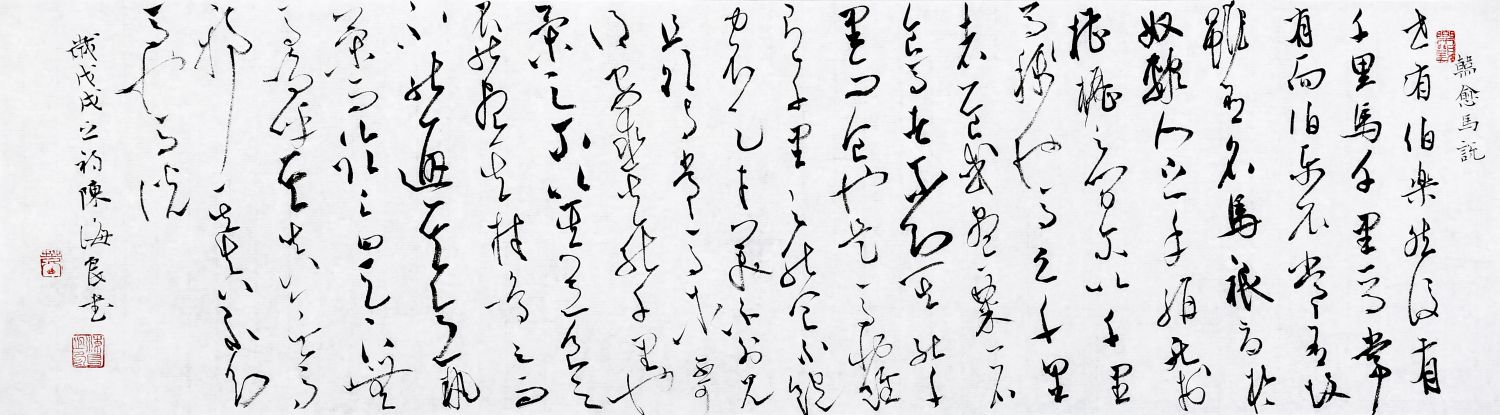 韓愈馬説
世有伯樂然後有
千里馬千里馬常
有而伯樂不常有故
雖有名馬祇辱於
奴隸人之手駢死於
槽櫪之間不以千里
馬稱也馬之千里
者一食或盡粟一石
食馬者不知其能千
里而食也是馬也雖
有千里之能食不飽
力不足才美不外見
且欲與常馬等不可
得安求其能千里也
策之不以其道食之
不能盡其材鳴之而
不能通其意執
策而臨之曰天下無
馬嗚呼其真無馬
邪其真不知
馬也馬説
歲戊戌之初陳海良書